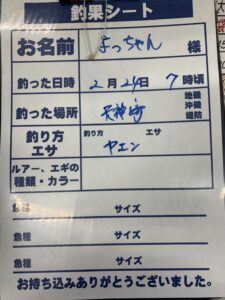 釣果シート
お名前 よっちゃん 様
釣った日時 2月24日 7時頃
釣った場所 天神崎 地磯 沖磯 堤防
釣り方 エサ 釣り方 エサ
ヤエン
ルアー、エギの種類・カラー
魚種 サイズ
魚種 サイズ
魚種 サイズ
お持ち込みありがとうございました。